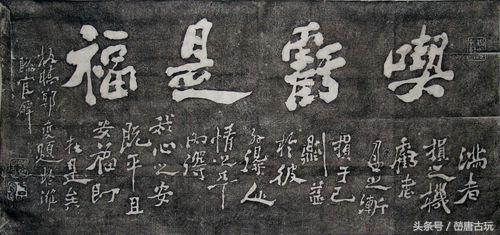 喫虧是福
滿者
損之機
虧者
盈之漸
損于己
則益
於彼
外得人
情之平
內得
我心之安
既平且
安福即
在是矣
板橋鄭燮題於濰
縣官廨
头条号 / 唐古玩